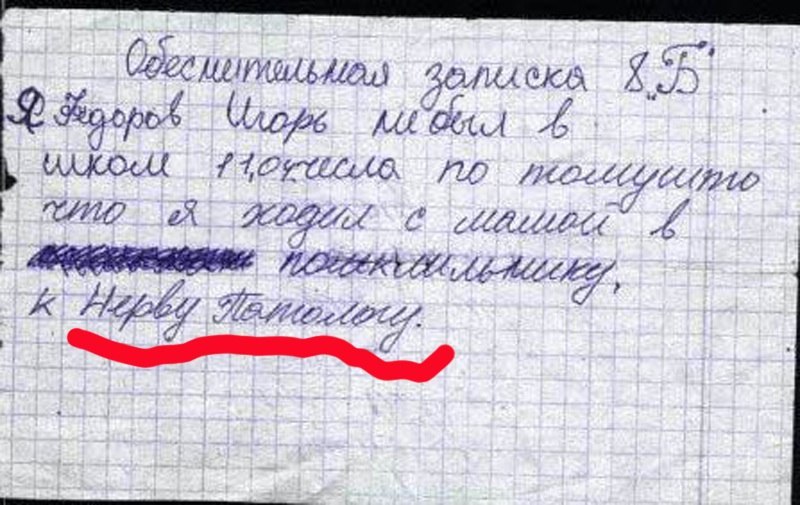 Обеснительная записка 8 „Б"
Я Федоров Игорь не был в
школ 11,04 числа по томушто
что я ходил с мамой в
к Нерву Потологу.